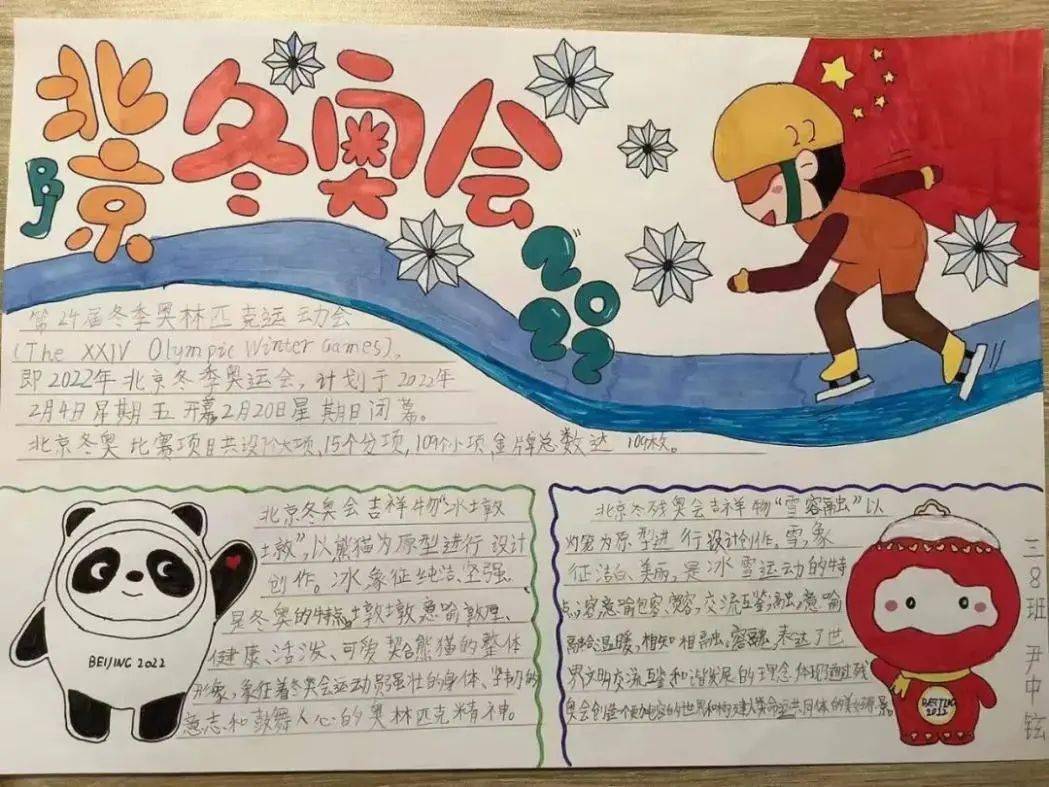 北京
BJ
冬奥会
2022
第24届冬季奥林匹克运动会
(The XXIV Olympic Winter Games)。
即2022年北京冬季奥运会，计划于2022年
2月4日星期五开幕2月20日星期日闭幕。
北京冬奥比赛项目共设7个大项，15个分项，109个小项，金牌总数达109枚。
北京冬奥会吉祥物“冰墩
墩”，以熊猫为原型进行设计
创作。冰象征纯洁、坚强、
是冬奥的特点。墩墩意喻敦厚、
健康、活泼、可爱契合熊猫的整体
形象，象征着冬奥会运动员强壮的身体、坚韧的
意志和鼓舞人心的奥林匹克精神。
BEIJING 2022
北京冬残奥会吉祥物“雪容融”以
灯笼为原型进行设计创作。雪，象
征洁白、美丽，是冰雪运动的特
点；容意喻包容、宽容，交流互鉴，融，意喻
融合、温暖，相知相融。容融，表达了世
界文明交流互鉴和谐发展的理念，体现了通过残
奥会创造一个包容的世界和构建人类命运共同体的美好愿景。
BEIJING
2022
三8班 尹中铉